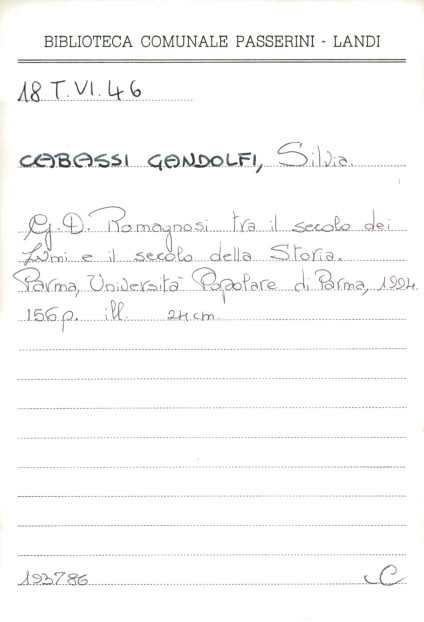 BIBLIOTECA COMUNALE PASSERINI - LANDI
18 T.VI.46
CABASSI GANDOLFI, Silvia.
G.D. Romagnosi tra il secolo dei
Lumi e il secolo della Storia.
Parma, Università Popolare di Parma, 1994.
156 p. ill. 24 cm.
193786 C